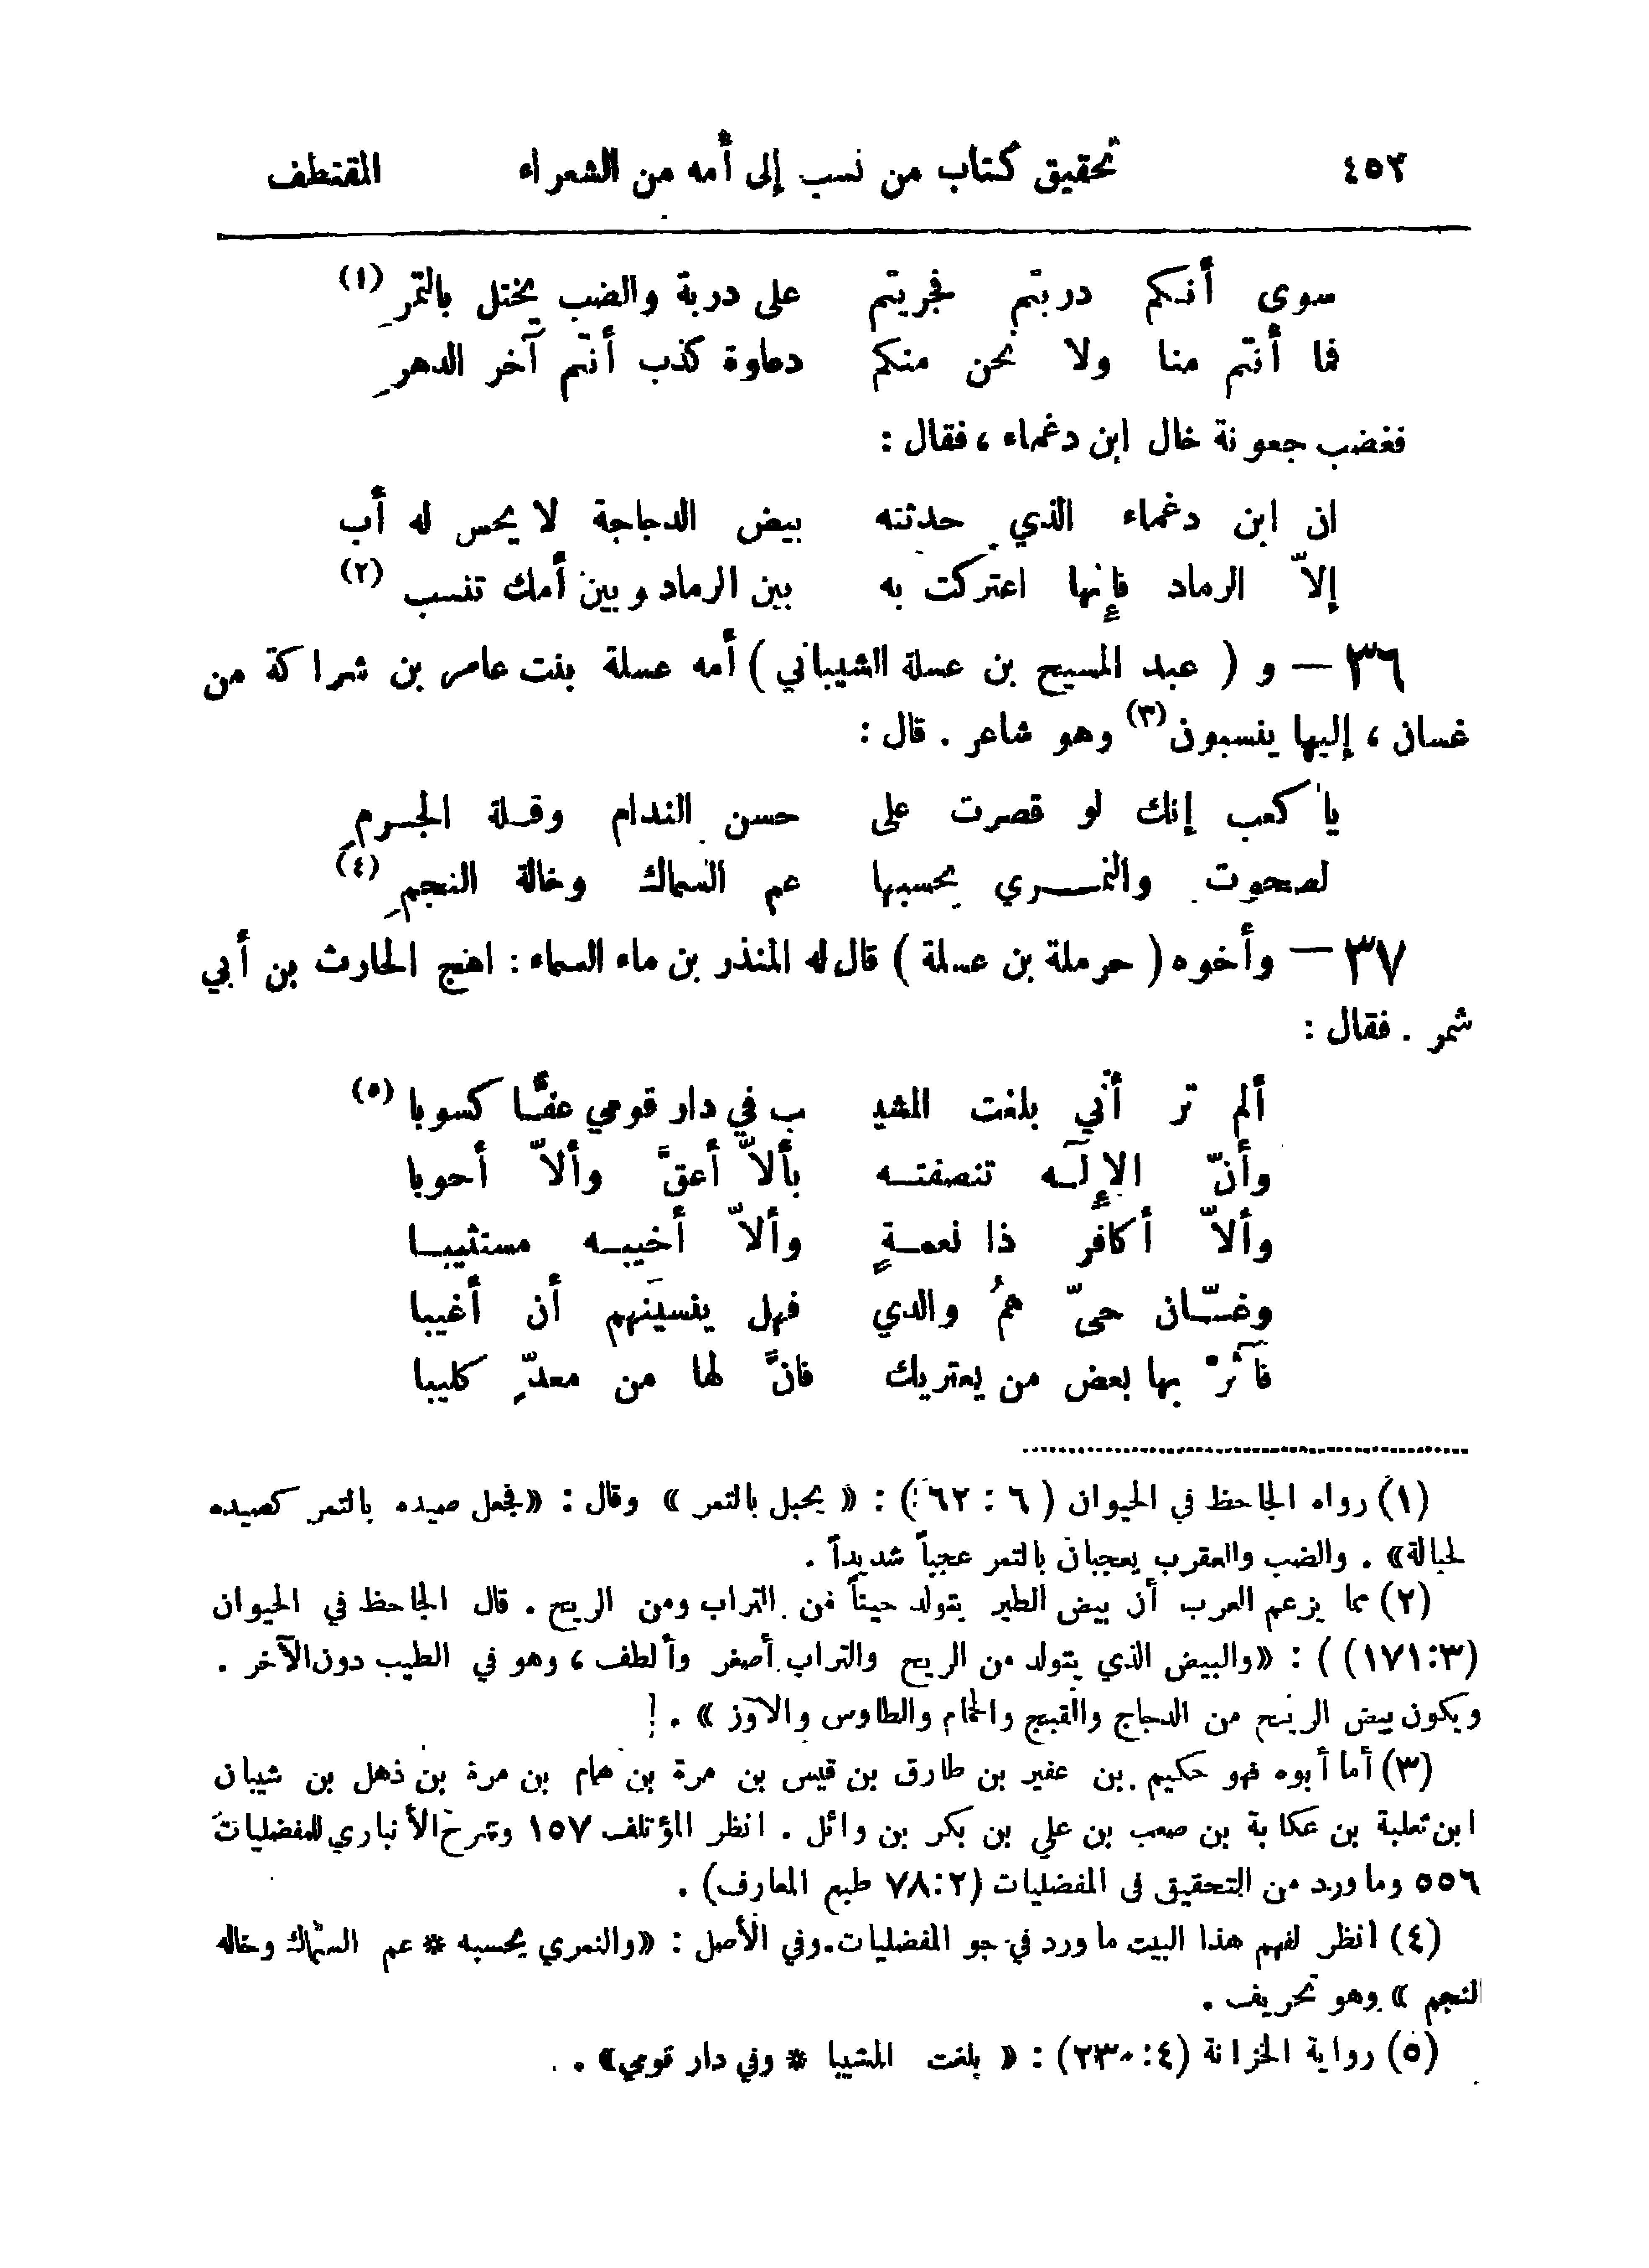 ٤٥٢ تحقيق كتاب من نسب إلى أمه من الشعراء المقتطف
سوى أنكم دربتم فجريتم على دربة والضب يختل بالتمرِ (١)
فما أنتم منا ولا نحن منكم دعاوة كذب أنتم آخر الدهرِ
فغضب جعونة خال ابن دغماء ، فقال :
ان ابن دغماء الذي حدثته بيض الدجاجة لا يحس له أب
إلاّ الرماد فإنها اعتركت به بين الرماد وبين أمك تنسب (٢)
٣٦ — و ( عبد المسيح بن عسلة الشيباني ) أمه عسلة بنت عامر بن شراكة من
غسان ، إليها ينسبون (٣) وهو شاعر . قال :
يا كعب إنك لو قصرت على حسن الندام وقلة الجرمِ
لصحوت والنمري يحسبها عم السماك وخالة النجمِ (٤)
٣٧ — وأخوه ( حرملة بن عسلة ) قال له المنذر بن ماء السماء : اهج الحارث بن أبي
شمر . فقال :
ألم تر أنّي بلغت المشيـ ـب في دار قومي عفًّا كسوبا (٥)
وأنّ الإلٓه تنصفته بألاّ أعقَّ وألاّ أحوبا
وألاّ أكافر ذا نعمةٍ وألاّ أخيبه مستثيبا
وغسّان حيّ همُ والدي فهل ينسيَنهم أن أغيبا
فآثرْ بها بعض من يعتريك فانَّ لها من معدّ كليبا
(١) رواه الجاحظ في الحيوان ( ٦ : ٦٢ ) : « يحبل بالتمر » وقال : «فجعل صيده بالتمر كصيده
لحبالة» . والضب والعقرب يعجبان بالتمر عجباً شديداً .
(٢) مما يزعم العرب أن بيض الطير يتولد حيناً من التراب ومن الريح . قال الجاحظ في الحيوان
(٣:١٧١) ) : «والبيض الذي يتولد من الريح والتراب أصغر وألطف ، وهو في الطيب دون الآخر .
ويكون بيض الريح من الدجاج والقبج والحمام والطاوس والأوز » . !
(٣) أما أبوه فهو حكيم بن عفير بن طارق بن قيس بن مرة بن همام بن مرة بن ذهل بن شيبان
ابن ثعلبة بن عكابة بن صعب بن علي بن بكر بن وائل . انظر المؤتلف ١٥٧ وشرح الأنباري للمفضليات
٥٥٦ وما ورد من التحقيق في المفضليات (٢:٧٨ طبع المعارف) .
(٤) انظر لفهم هذا البيت ما ورد في جو المفضليات . وفي الأصل : «والنمري يحسبه * عم السمّاك وخاله
النجم » وهو تحريف .
(٥) رواية الخزانة (٤: ٢٣٠) : « بلغت المشيبا * وفي دار قومي» .